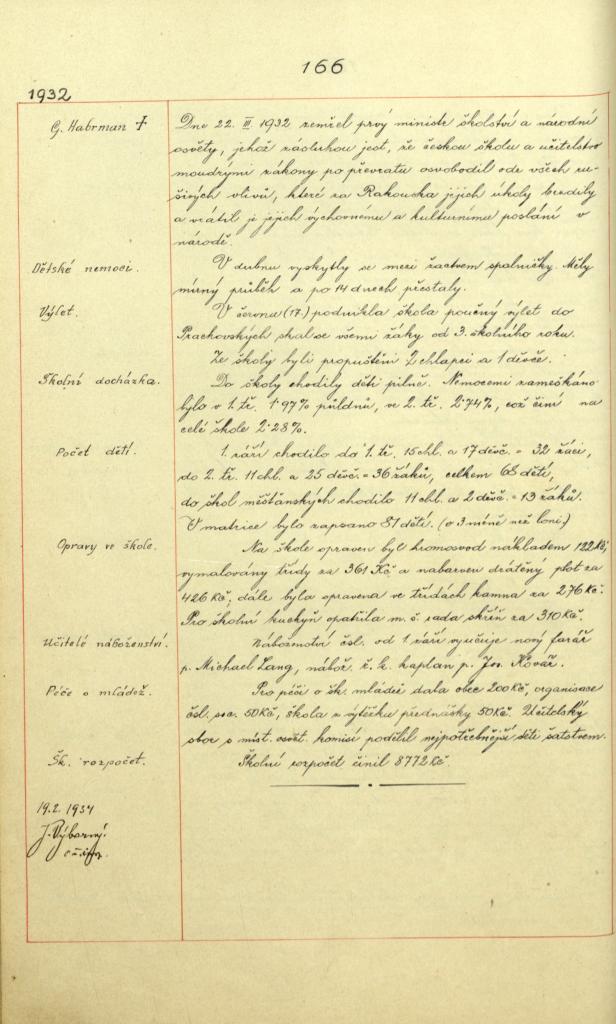 166
1932
G. Habrman †
Dne 22. III. 1932 zemřel prvý ministr školství a národní
osvěty, jehož zásluhou jest, že českou školu a učitelstvo
moudrými zákony po převratu osvobodil ode všech ru-
šivých vlivů, které za Rakouska jejich úkoly brzdily
a vrátil je jejich výchovnému a kulturnímu poslání v
národě.
Dětské nemoci.
V dubnu vyskytly se mezi žactvem spalničky. Měly
mírný průběh a po 14 dnech přestaly.
Výlet.
V červnu (17.) podnikla škola poučný výlet do
Prachovských skal se všemi žáky od 3. školního roku.
Ze školy byli propuštěni 2 chlapci a 1 děvče.
Školní docházka.
Do školy chodily děti pilně. Nemocemi zameškáno
bylo v 1. tř. 1·97% půldnů, ve 2. tř. 2·74%, což činí na
celé škole 2·28%.
Počet dětí.
1. září chodilo do 1. tř. 15 chl. a 17 děvč. = 32 žáci,
do 2. tř. 11 chl. a 25 děvč. = 36 žáků, celkem 68 dětí,
do škol měšťanských chodilo 11 chl. a 2 děvč. = 13 žáků.
V matrice bylo zapsano 81 dětí. (o 3 méně než loni.)
Opravy ve škole.
Na škole opraven byl hromosvod nákladem 122 Kč,
vymalovány třídy za 361 Kč a nabarven drátěný plot za
426 Kč, dále byla opravena ve třídách kamna za 276 Kč.
Pro školní kuchyň opatřila m. š. rada skříň za 310 Kč.
Učitelé náboženství.
Náboženství čsl. od 1. září vyučuje nový farář
p. Michael Lang, nábož. ř. k. kaplan p. Jos. Kovář.
Péče o mládež.
Pro péči o šk. mládež dala obec 200 Kč, organisace
čsl. soc. 50 Kč, škola z výtěžku přednášky 50 Kč. Učitelský
sbor s míst. osvět. komisí podělil nejpotřebnější děti šatstvem.
Šk. rozpočet.
Školní rozpočet činil 8772 Kč.
19.2. 1934
J. Výborný